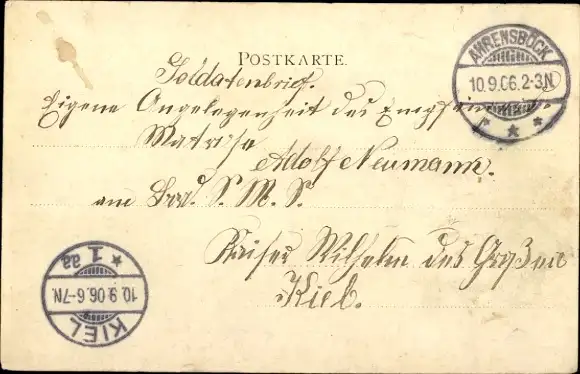 POSTKARTE.
Soldatenbrief.
Eigene Angelegenheit des Empfängers.
Matrose
Adolf Neumann.
am Bord. S. M. S.
Kaiser Wilhelm des Großen
Kiel.
AHRENSBÖCK
10.9.06.2-3N
KIEL
10.9.06.6-7N.
* 1 aa